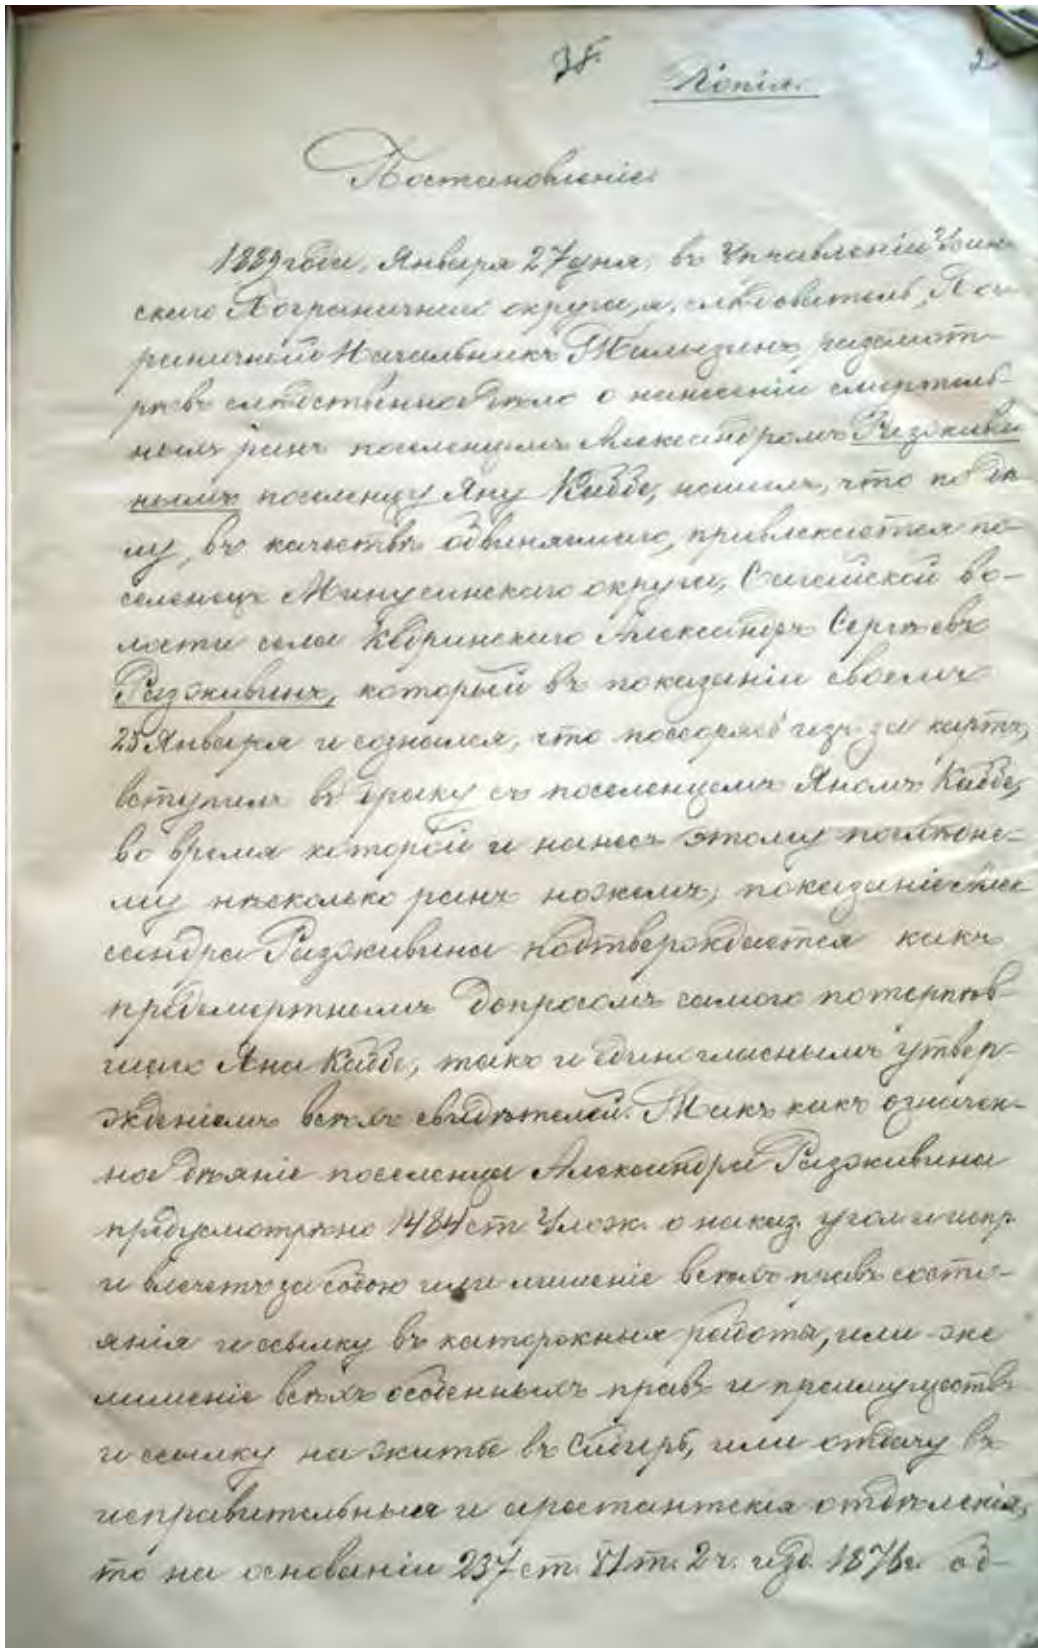 38.
2
Копія.
Постановленіе
1889 года, Января 27 дня, въ Управленіи Усин-
скаго Пограничнаго округа, я, слѣдователь, Пог-
раничный Начальникъ Талызинъ, разсмот-
рѣвъ слѣдственное дѣло о нанесеніи смертель-
ныхъ ранъ поселенцемъ Александромъ Разживи
нымъ поселенцу Яну Каббе, нашелъ, что по дѣ-
лу, въ качествѣ обвиняемаго, привлекается по-
селенецъ Минусинскаго округа, во-
лости села Александръ Сергѣевъ
Разживинъ, который въ показаніи своемъ
25 Января и сознался, что поссорясь изъ за картъ,
вступилъ въ драку съ поселенцемъ Яномъ Каббе,
во время которой и нанесъ этому послѣдне-
му нѣсколько ранъ ножемъ; показаніе Алек
сандра Разживина подтверждается какъ
предсмертнымъ допросомъ самого потерпѣв-
шаго Яна Каббе, такъ и единогласнымъ утвер-
жденіемъ всѣхъ свидѣтелей. Такъ какъ означен-
ное дѣяніе поселенца Александра Разживина
предусмотрѣно 1484 ст. Улож. о наказ. угол. и испр.
и влечетъ за собою или лишеніе всѣхъ правъ состо-
янія и ссылку въ каторжныя работы, или же
лишеніе всѣхъ особенныхъ правъ и преимуществъ
и ссылку на житье въ Сибирь, или отдачу въ
исправительныя и арестантскія отдѣленія,
то на основаніи 237 ст. т. 2 ч. изд. 1876 г. об-